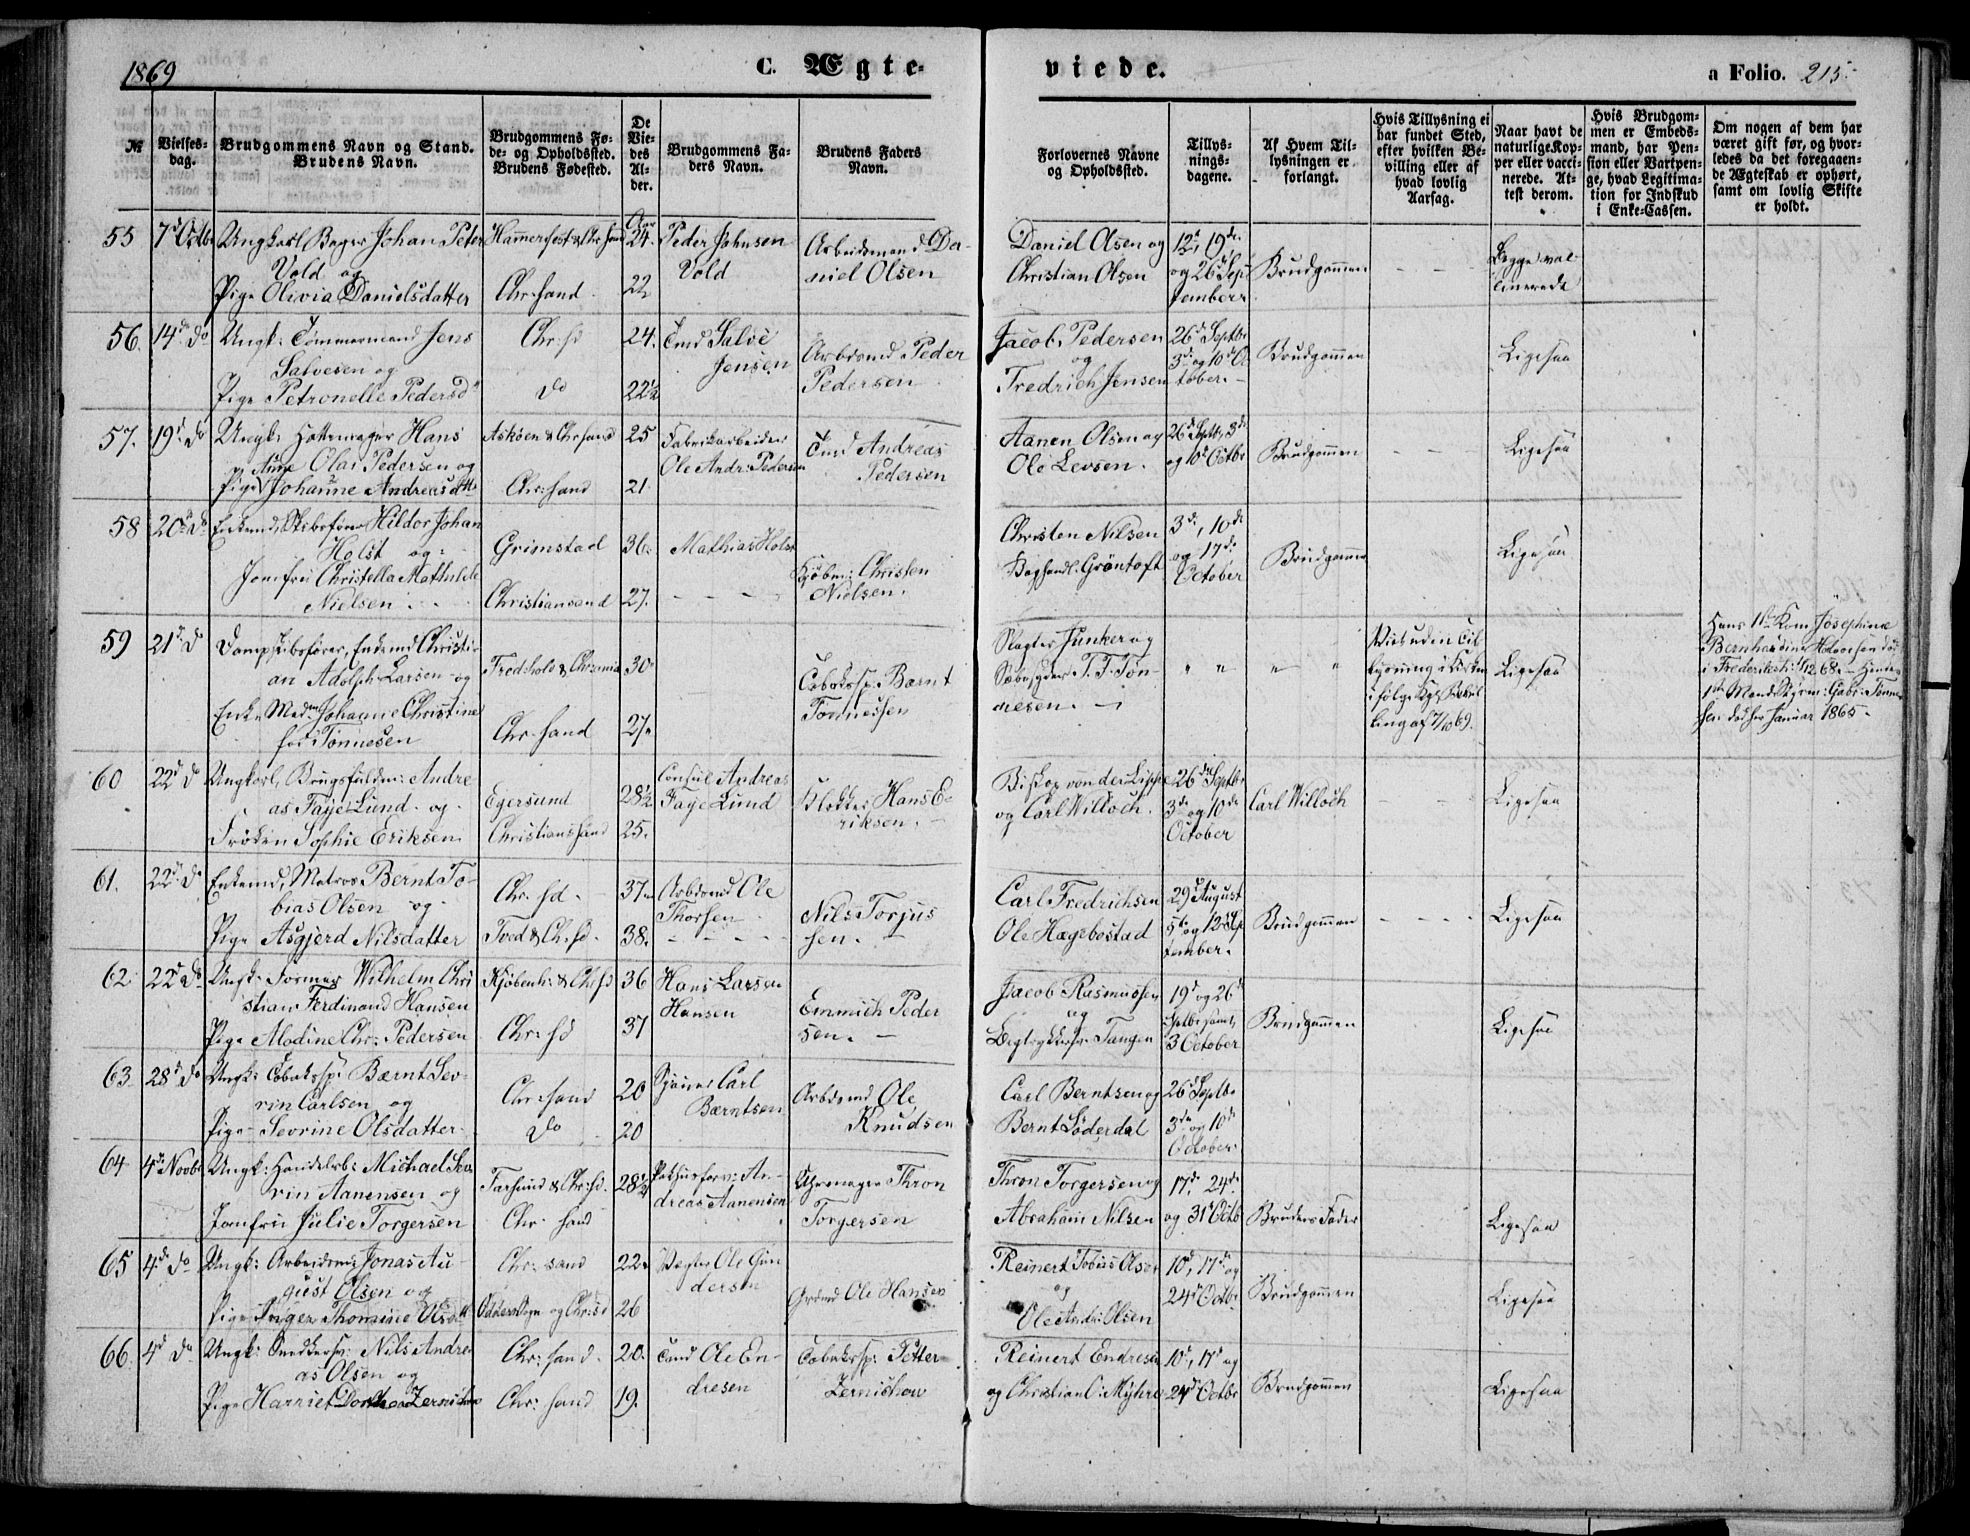 1869
C. Ægte-
viede.
a Folio. 215
№
Vielses-
dag.
Brudgommens Navn og Stand.
Brudens Navn.
Brudgommens Fø-
de- og Opholdssted.
Brudens Fødested.
De
Vie-
des
Al-
der.
Brudgommens Fa-
ders Navn.
Brudens Faders
Navn.
Forlovernes Navne
og Opholdssted.
Tillys-
nings-
dagene.
Af Hvem Til-
lysningen er
forlangt.
Hvis Tillysning ei
har fundet Sted,
efter hvilken Be-
villing eller af
hvad lovlig
Aarsag.
Naar havt de
naturlige Kop-
per eller vacci-
nerede. At-
test derom.
Hvis Brudgom-
men er Embeds-
mand, har Pen-
sion eller Vartpen-
ge, hvad Legitima-
tion for Indskud
i Enke-Cassen.
Om nogen af dem har
været gift før, og hvor-
ledes da det foregaaen-
de Ægteskab er ophørt,
samt om lovlig Skifte
er holdt.
55 7d Octbr Ungkarl Bager Johan Peter
Vold og
Pige Olivia Danielsdatter
Hammerfest & Chr.sand
Chr.sand
Aar
24.
22
Peder Johnsen
Vold
Arbeidsmand Da-
niel Olsen
Daniel Olsen og
Christian Olsen
12d, 19de
og 26d Sep-
tember
Brudgommen
Begge vac-
cinerede
56. 14de do Ungk: Tømmermand Jens
Salvesen og
Pige Petronelle Pedersd
Chr.sd
do
24.
22½
Tmd Salve
Jensen
Arbdsmd Peder
Pedersen
Jacob Pedersen
og
Fredrich Jensen
26d Septbr
3de og 10d Oc
tober.
Brudgommen
Ligesaa
57. 19d do Ungk: Hattemager Hans
Olai Pedersen og
Pige Anne Johanne Andreasdtt
Askøen & Chr.sand
Chr:sand
25
21
Fabrikarbeider
Ole Andr: Pedersen
Tmd Andreas
Pedersen
Aanen Olsen og
Ole Levsen.
26d Septb, 3de
og 10d Octbr
Brudgommen
Ligesaa
58 20d do Enkemd, Skibsfører Hildor Johan
Holst og
Jomfru Christella Mathilde
Nielsen
Grimstad
Christiansand
36.
27.
Mathias Holst
Kjøbm: Christen
Nielsen.
Christen Nilsen
Boghandl: Grøntoft
3de, 10de
og 17de
October
Brudgommen
Ligesaa
59 21d do Dampskibsfører, Enkemd Christi-
an Adolph Larsen og
Enke Mad. Johanne Christine
fød Tønnesen
Fredshald & Christiania
Chr.sand
30
27
Tobakssp: Bærnt
Tønnessen
Slagter Junker og
T. F. Tøn-
nesen.
Viet uden Til
lysning i Kirken
ifølge Kgl Bevil
ling af 7/10 69.
Ligesaa
Hans 1ste Kone Josephine
Bernhardine død
i Frederikst: 1/12 68. Hendes
1ste Mand Gabr: Tønne
sen død Januar 1865.
60 22d do Ungkarl, Brugsfuldm: Andre
as Faye Lund og
Frøken Sophie Eriksen
Egersund
Christianssand
28½
25.
Consul Andreas
Faye Lund
Klokker Hans E-
riksen.
Biskop von der Lippe
og Carl Willoch.
26de Septbr
3de og 10de
October
Carl Willoch
Ligesaa
61. 22d do Enkemd, Matros Bernt To-
bias Olsen og
Pige Asgjerd Nilsdatter
Chr.sd.
Tved & Ch.sd.
37
38.
Arbdsmd Ole
Thorsen
Nils Torjus
sen.
Carl Fredrichsen
Ole Hægebostad
29d August
5te og 12 Sep
tember.
Brudgommen
Ligesaa
62 22d do Ungk: Former Wilhelm Chri
stian Ferdinand Hansen
Pige Alodine Chr: Pedersen
Kjøbenh: & Ch.sd
Chr.sd
36
37
Hans Larsen
Hansen
Emmich Peder
sen.
Jacob Rasmussen
og
Tangen
19d og 26d
Septbr samt
3 October
Brudgommen
Ligesaa
63 28d do Ungk: Tobakssp: Bærnt Sev-
rin Carlsen og
Pige Sevrine Olsdatter
Chr.sand
do
20
20
Carl
Bærntsen
Arbdsmd Ole
Knudsen
Carl Berntsen og
Bernt Søderdal
26d Septbr
3de og 10de
October.
64 4d Novbr Ungk: Handelsb: Michael Sev
rin Aanensen og
Jomfru Julie Torgersen
Farsund & Chr.sd.
Chr: sand
28½
Pakhusforv: An-
dreas Aanensen
Uhrmager Thron
Torgersen
Thron Torgersen og
Abraham Nilsen
17d, 24de
og 31d Octb
Brudens Fader
Ligesaa
65 4d do Ungk: Arbeidsmd Jonas Au-
gust Olsen og
Pige Inger Thomine Olsd
Chr: sand
Oddernæs Sogn og Chr.sd
22
26
Ole Gun
dersen
Ole Hansen
Reinert Tobias Olsen
og
Ole Andr: Olsen
10d, 17de og
24d Octbr
Brudgommen
Ligesaa
66. 4d do Ungk: Snedkersv: Nils Andre
as Olsen og
Pige Harriet Dorthea Zernichow
Chr: sand.
Chr: sand
20.
19.
Tmd Ole En-
dresen
Tobakssp: Petter
Zernichow
Reinert Endresen
og Christian O: Myhre
10d, 17d og
24d Octbr
Brudgommen
Ligesaa